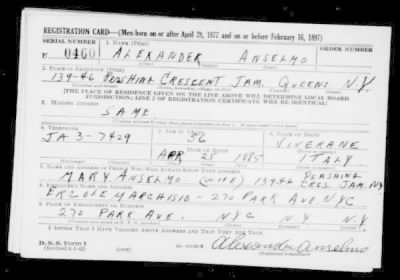 REGISTRATION CARD—(Men born on or after April 28, 1877 and on or before February 16, 1897)
SERIAL NUMBER 1. NAME (Print) ORDER NUMBER
U 0460 ALEXANDER ANSELMO
2. PLACE OF RESIDENCE (Print)
139-46 PERSHING CRESCENT JAM. QUEENS N.Y.
[THE PLACE OF RESIDENCE GIVEN ON THE LINE ABOVE WILL DETERMINE LOCAL BOARD
JURISDICTION; LINE 2 OF REGISTRATION CERTIFICATE WILL BE IDENTICAL]
3. MAILING ADDRESS
SAME
4. TELEPHONE 5. AGE IN YEARS 6. PLACE OF BIRTH
JA 3-7429 56 VIVERANE
DATE OF BIRTH
APR 25 1885 ITALY
7. NAME AND ADDRESS OF PERSON WHO WILL ALWAYS KNOW YOUR ADDRESS
PERSHING
MARY ANSELMO (WIFE) 139-46 CRES. JAM. NY
8. EMPLOYER'S NAME AND ADDRESS
ERCOLE MARCHISIO - 270 PARK AVE. NYC
9. PLACE OF EMPLOYMENT OR BUSINESS
270 PARK AVE. NYC N.Y. N.Y.
I AFFIRM THAT I HAVE VERIFIED ABOVE ANSWERS AND THAT THEY ARE TRUE.
D. S. S. Form 1
(Revised 4-1-42) Alexander Anselmo